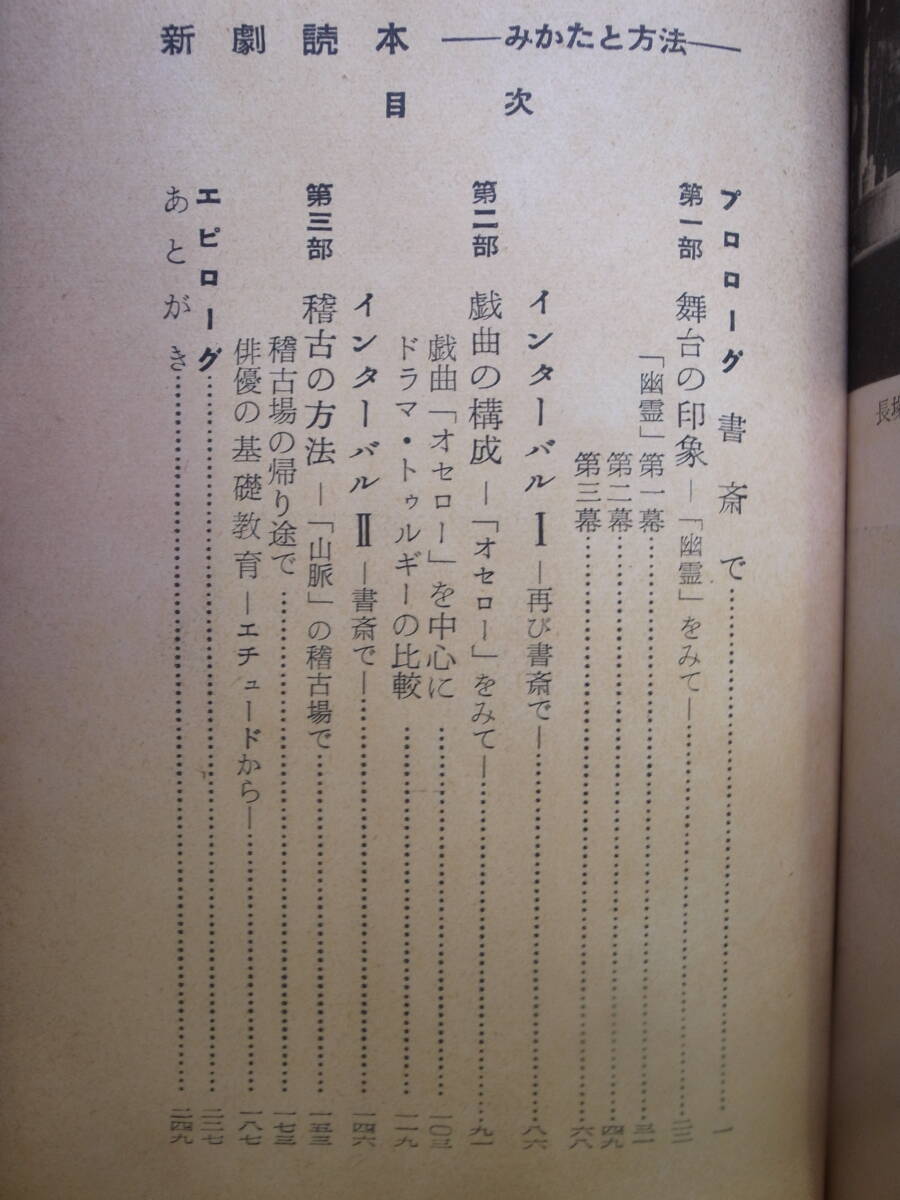 新劇読本――みかたと方法――
目次
プロローグ 書斎で……一
第一部 舞台の印象―「幽霊」をみて―……二二
「幽霊」第一幕……三一
第二幕……四九
第三幕……六八
インターバルⅠ―再び書斎で―……八六
第二部 戯曲の構成―「オセロー」をみて―……九一
戯曲「オセロー」を中心に……一〇三
ドラマ・トゥルギーの比較……一一九
インターバルⅡ―書斎で―……一四六
第三部 稽古の方法―「山脈」の稽古場で……一五三
稽古場の帰り途で……一七三
俳優の基礎教育―エチュードから―……一八七
エピローグ……二二七
あとがき……二四九
長